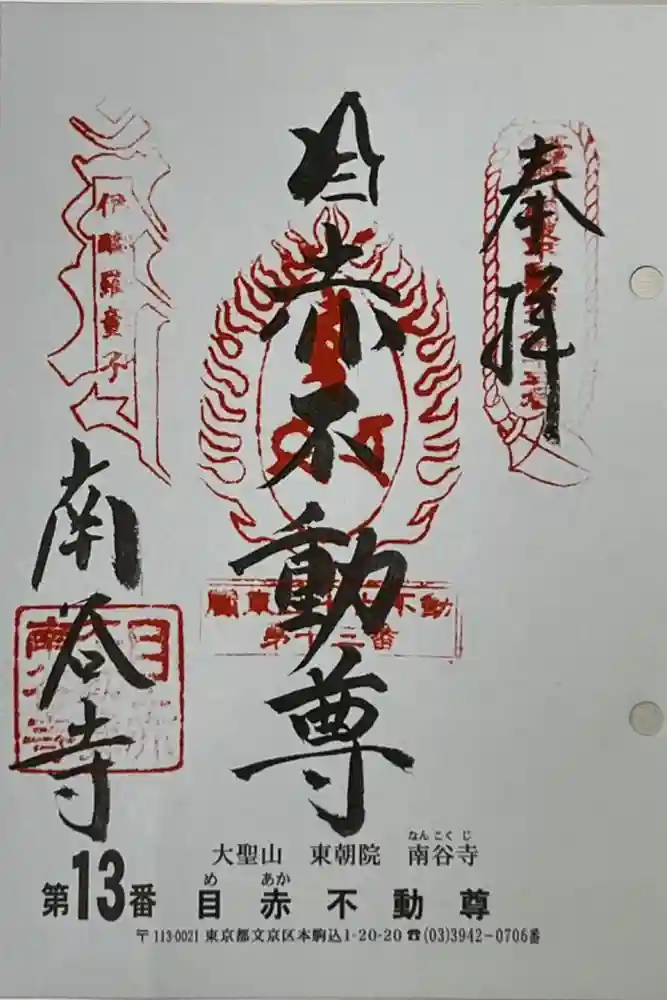 奉拝
目赤不動尊
南谷寺
伊醯羅童子
関東三十六不動
第十三番
大聖山 東朝院 南谷寺
なんこくじ
第13番 目赤不動尊
めあか
〒113-0021 東京都文京区本駒込1-20-20 ☎(03)3942-0706番